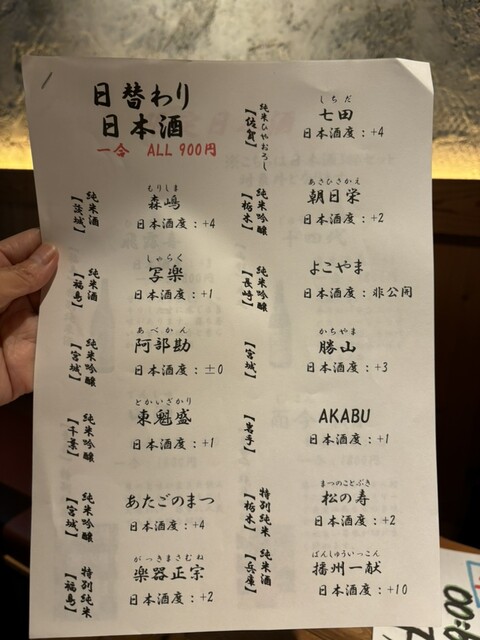 日替わり
日本酒
一合 ALL 900円
純米酒
【茨城】
もりしま
森嶋
日本酒度：+4
純米酒
【福島】
しゃらく
写楽
日本酒度：+1
純米吟醸
【宮城】
あべかん
阿部勘
日本酒度：±0
純米吟醸
【千葉】
とかいざかり
東魁盛
日本酒度：+1
純米吟醸
【宮城】
あたごのまつ
日本酒度：+4
特別純米
【福島】
がっきまさむね
楽器正宗
日本酒度：+2
純米ひやおろし
【佐賀】
しちだ
七田
日本酒度：+4
純米吟醸
【栃木】
あさひさかえ
朝日栄
日本酒度：+2
純米吟醸
【長崎】
よこやま
日本酒度：非公開
【宮城】
かちやま
勝山
日本酒度：+3
【岩手】
AKABU
日本酒度：+1
特別純米
【栃木】
まつのことぶき
松の寿
日本酒度：+2
純米酒
【兵庫】
ばんしゅういっこん
播州一献
日本酒度：+10